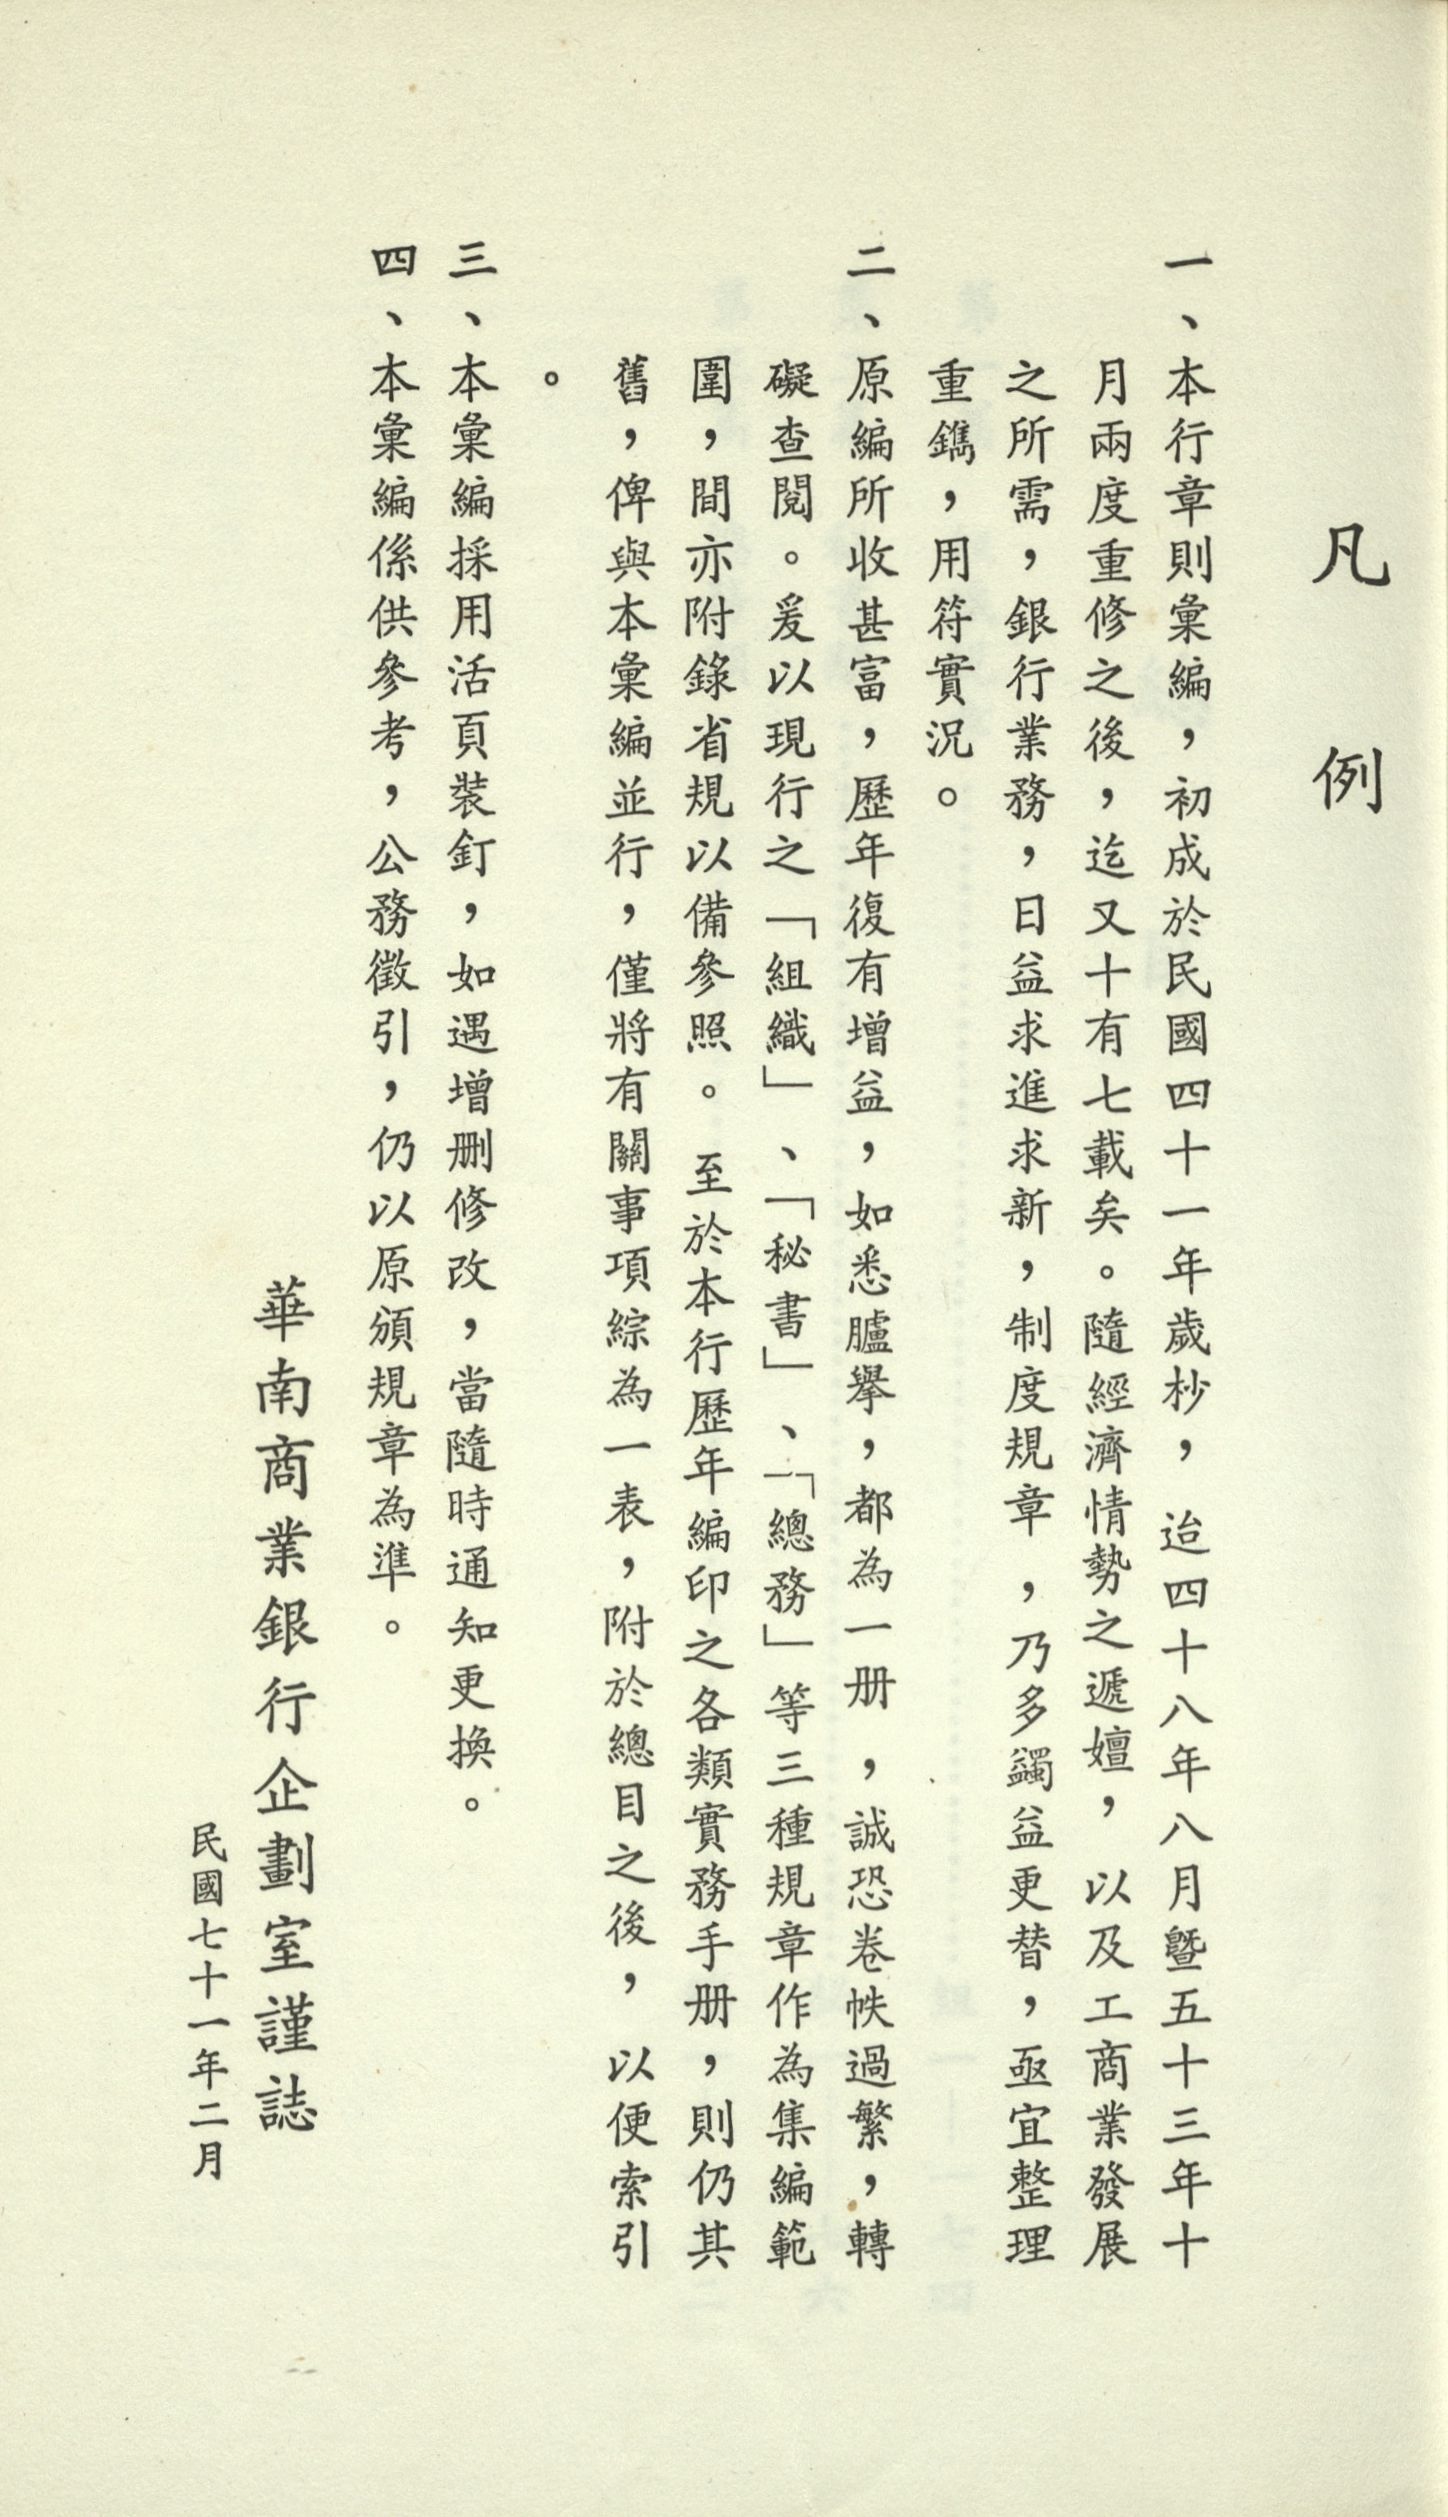 凡例
一、本行章則彙編，初成於民國四十一年歲杪，迨四十八年八月暨五十三年十
月兩度重修之後，迄又十有七載矣。隨經濟情勢之遞嬗，以及工商業發展
之所需，銀行業務，日益求進求新，制度規章，乃多蠲益更替，亟宜整理
重鐫，用符實況。
二、原編所收甚富，歷年復有增益，如悉臚舉，都為一册，誠恐卷帙過繁，轉
礙查閱。爰以現行之「組織」、「秘書」、「總務」等三種規章作為集編範
圍，間亦附錄省規以備參照。至於本行歷年編印之各類實務手册，則仍其
舊，俾與本彙編並行，僅將有關事項綜為一表，附於總目之後，以便索引
。
三、本彙編採用活頁裝釘，如遇增删修改，當隨時通知更換。
四、本彙編係供參考，公務徵引，仍以原頒規章為準。
華南商業銀行企劃室謹誌
民國七十一年二月